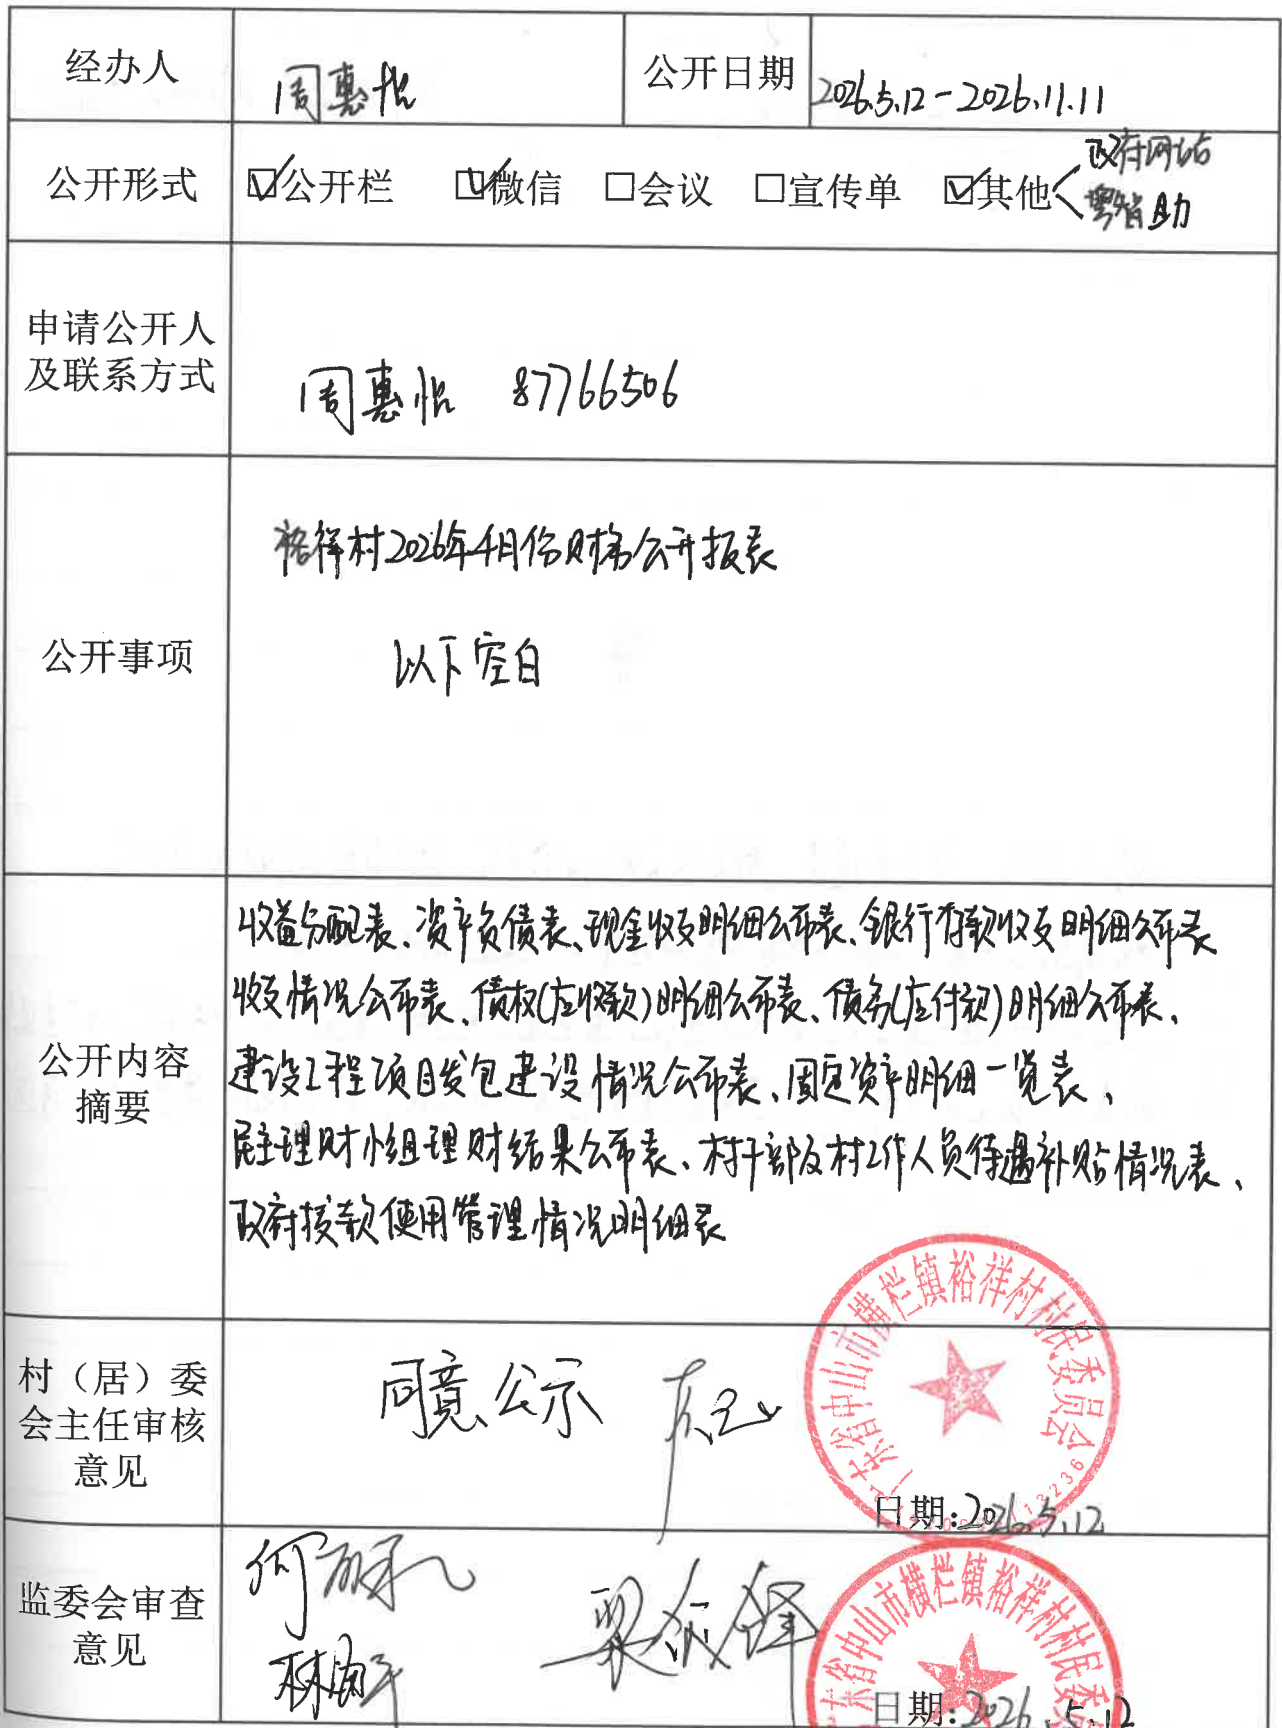 经办人 周惠怡 公开日期 2026.5.12-2026.11.11
公开形式 ☑公开栏 ☑微信 □会议 □宣传单 ☑其他 政府网站
粤智助
申请公开人
及联系方式 周惠怡 87766506
公开事项
裕祥村2026年4月份财务公开报表
以下空白
公开内容
摘要
收益分配表、资产负债表、现金收支明细公布表、银行存款收支明细公布表
收支情况公布表、债权(应收款)明细公布表、债务(应付款)明细公布表、
建设工程项目发包建设情况公布表、固定资产明细一览表、
民主理财小组理财结果公布表、村干部及村工作人员待遇补贴情况表、
政府拨款使用管理情况明细表
村（居）委
会主任审核
意见
同意公示
广东省中山市横栏镇裕祥村村民委员会
日期:2026.5.12
监委会审查
意见
东省中山市横栏镇裕祥村村民委
日期:2026.5.12